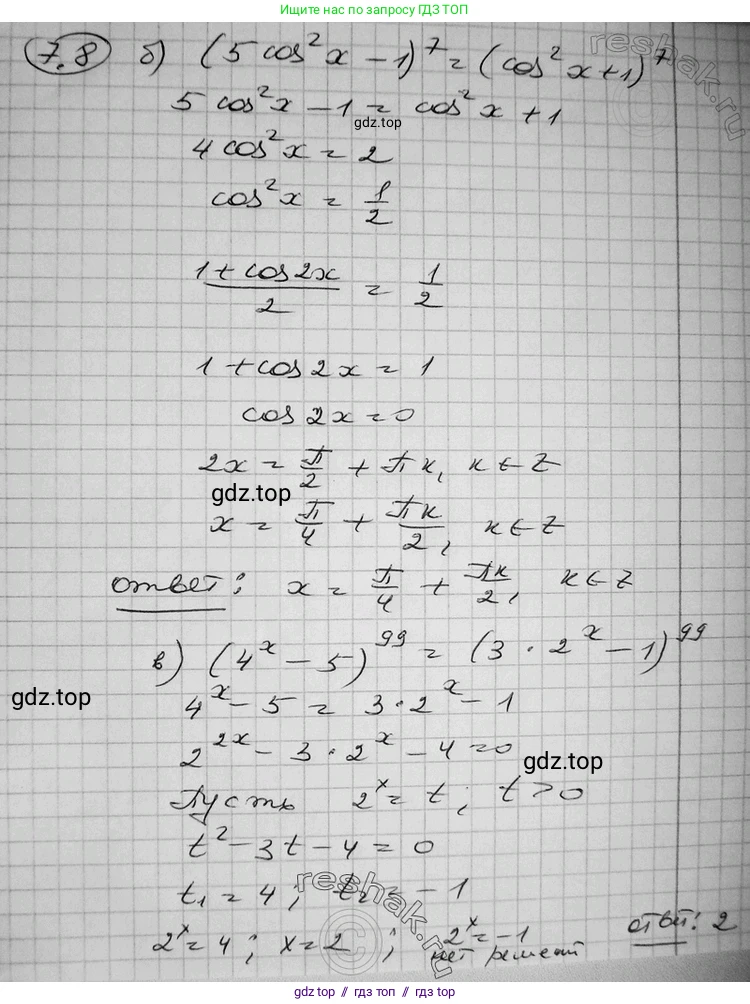 Ищите нас по запросу ГДЗ ТОП
7.8 б) (5 cos²x − 1)⁷ = (cos²x + 1)⁷
5 cos²x − 1 = cos²x + 1
gdz.top
4 cos²x = 2
cos²x = 1/2
(1 + cos 2x)/2 = 1/2
1 + cos 2x = 1
cos 2x = 0
2x = π/2 + πк, к ∈ Z
gdz.top
x = π/4 + πк/2, к ∈ Z
ответ: x = π/4 + πк/2, к ∈ Z
в) (4ˣ − 5)⁹⁹ = (3 · 2ˣ − 1)⁹⁹
gdz.top
4ˣ − 5 = 3 · 2ˣ − 1
2²ˣ − 3 · 2ˣ − 4 = 0
gdz.top
Пусть 2ˣ = t; t > 0
t² − 3t − 4 = 0
t₁ = 4; t₂ = −1
2ˣ = 4; x = 2; 2ˣ = −1
нет решений
ответ: 2
reshak.ru
reshak.ru
gdz.top // гдз.топ // gdz.top